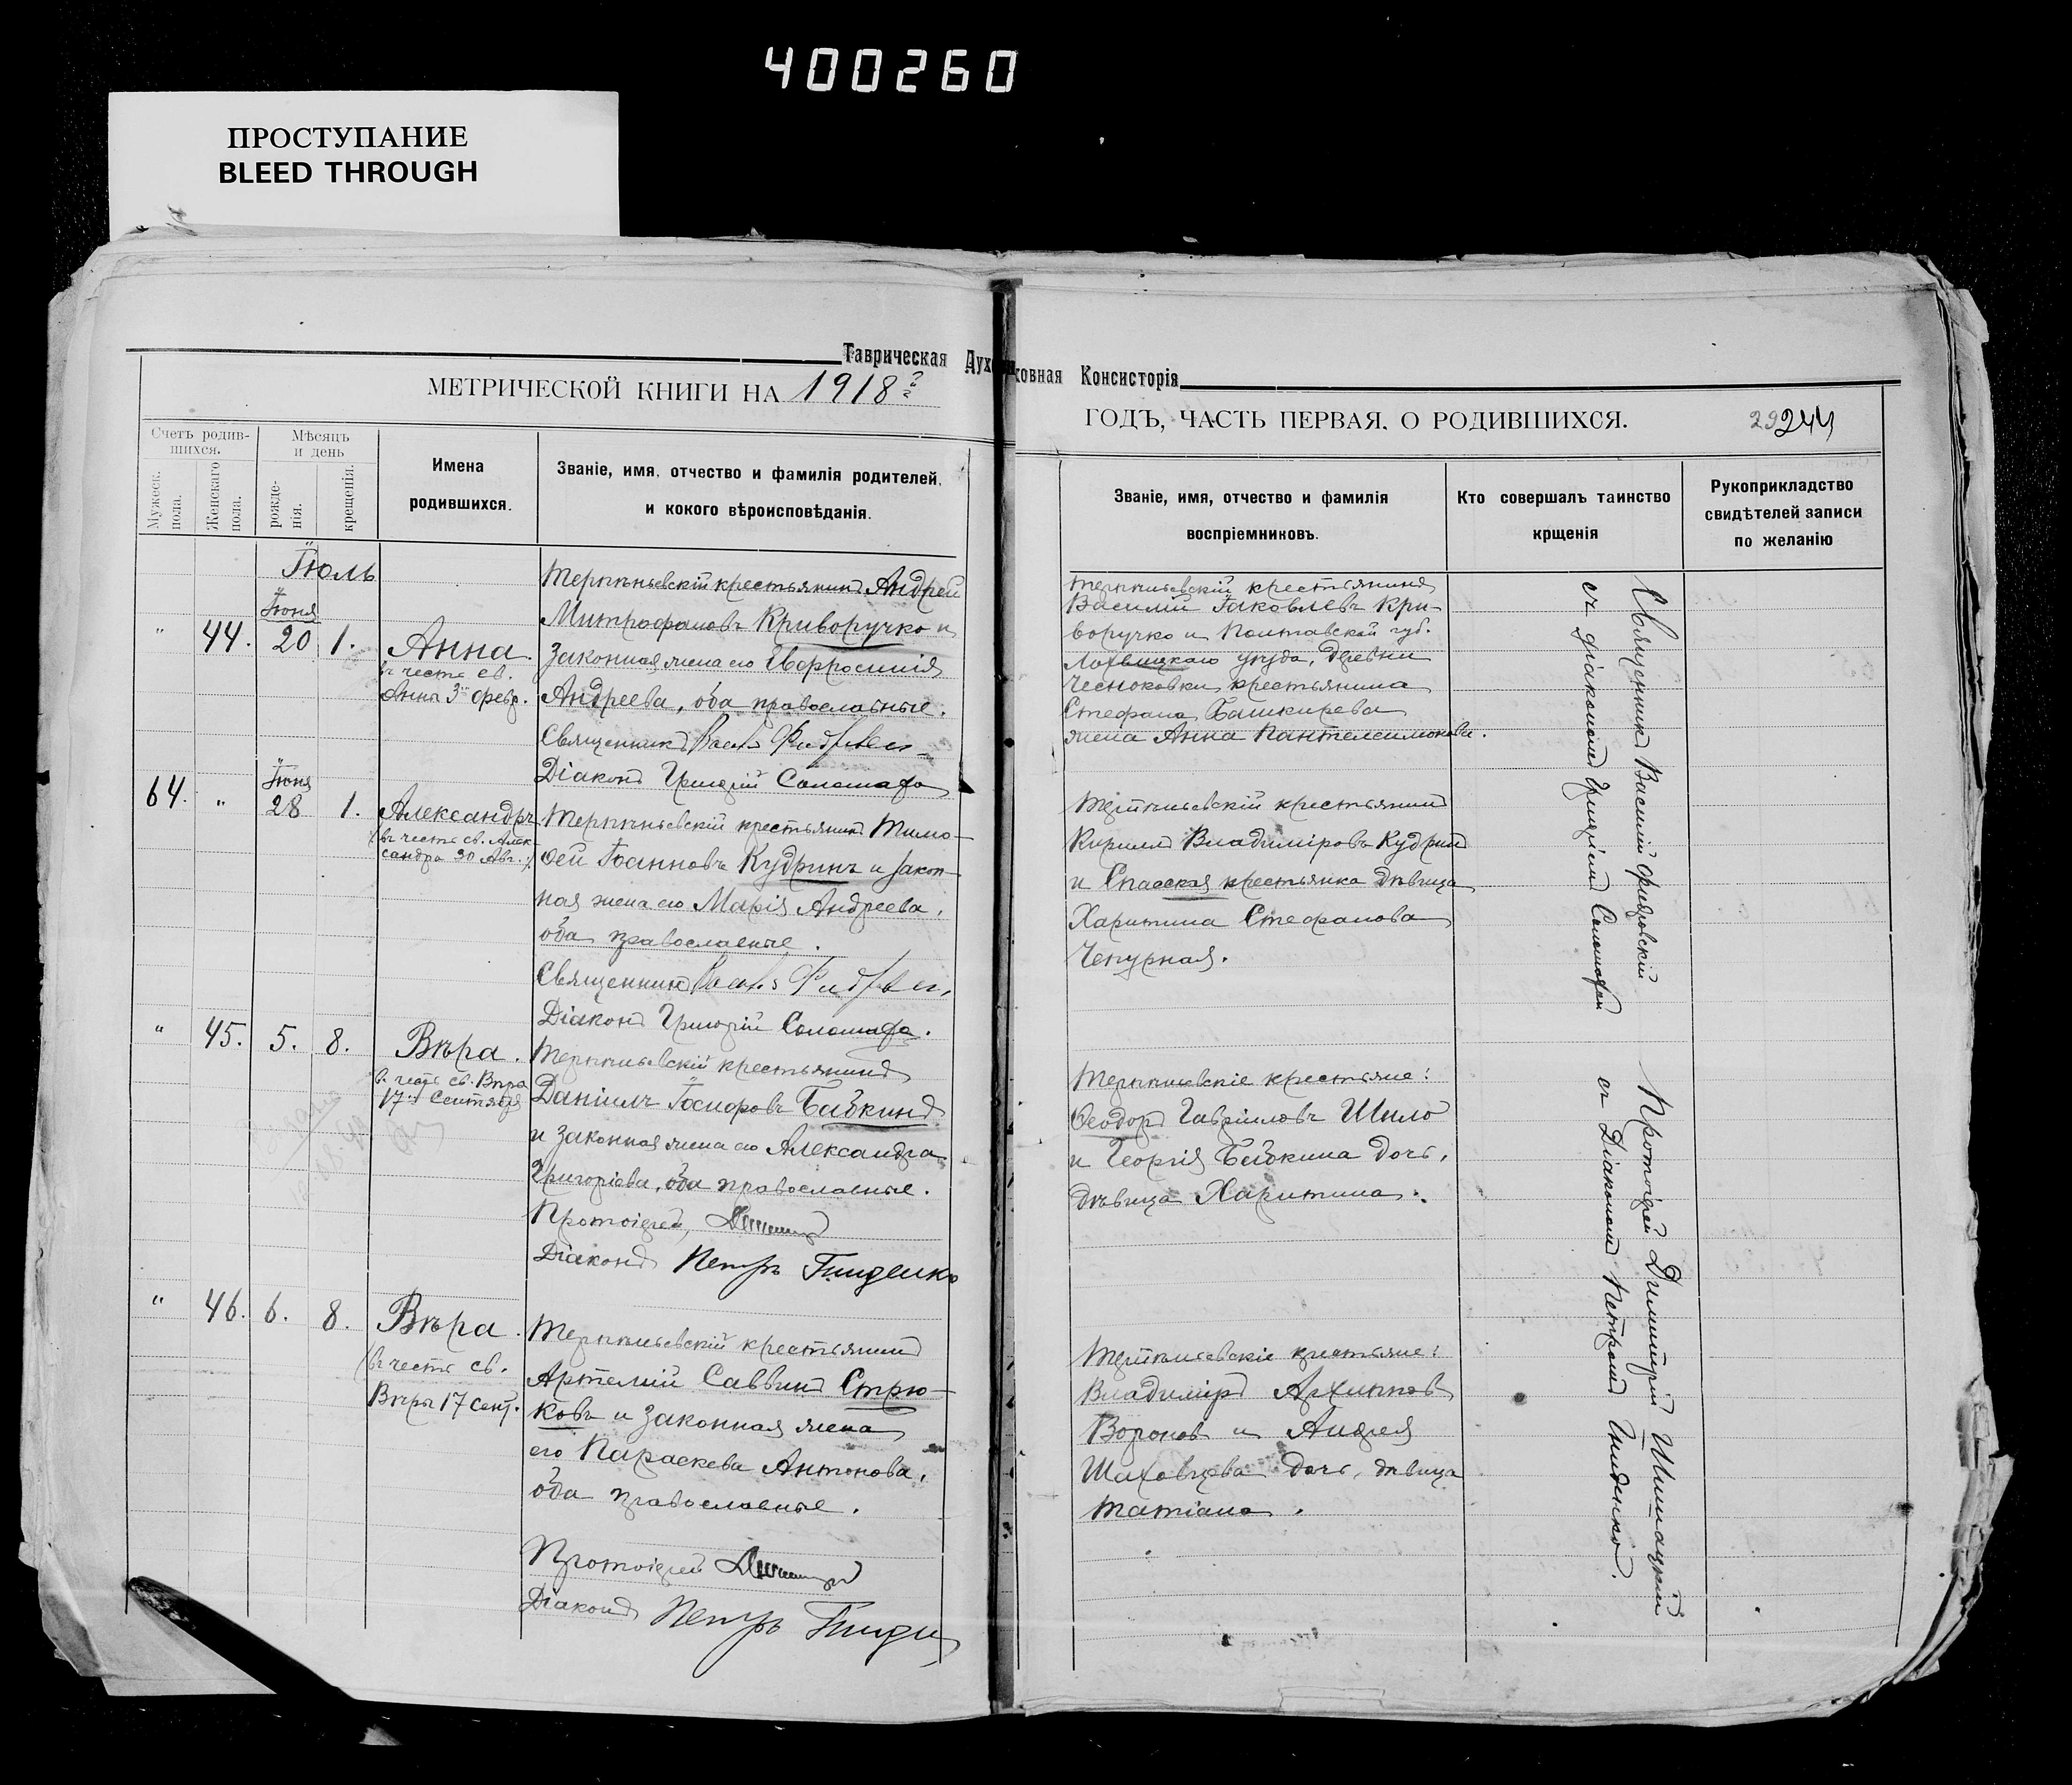 400260
ПРОСТУПАНИЕ
BLEED THROUGH
Таврическая Духовная Консисторія
МЕТРИЧЕСКОЙ КНИГИ НА 1918
ГОДЪ, ЧАСТЬ ПЕРВАЯ, О РОДИВШИХСЯ.
244
Счетъ родив-
шихся.
Мужеск.
пола.
Женскаго
пола.
Мѣсяцъ
и день
рожде-
нія.
крещенія.
Имена
родившихся.
Званіе, имя, отчество и фамилія родителей,
и кокого вѣроисповѣданія.
Званіе, имя, отчество и фамилія
воспріемниковъ.
Кто совершалъ таинство
крщенія
Рукоприкладство
свидѣтелей записи
по желанію
Іюль
" 44. Іюня 20 1.
Анна.
въ честь св.
Анны 3 февр.
Терпѣньевскій крестьянинъ Андрей
Митрофановъ Криворучко и
законная жена его Евфросинія
Андреева, оба православные.
Священникъ
Діаконъ Григорій Соломаха
Терпѣньевскій крестьянинъ
Василій Іаковлевъ Кри-
воручко и Полтавской губ.
Лохвицкаго уѣзда, деревни
Чесноковки крестьянина
Стефана Башкирева
жена Анна Пантелеимонова.
Священникъ Василій
съ діакономъ Григоріемъ Соломахой
64. " Іюня 28 1.
Александръ
(въ честь св. Алек-
сандра 30 Авг.)
Терпѣньевскій крестьянинъ Тимо-
ѳей Іоанновъ Кудринъ и закон-
ная жена его Марія Андреева,
оба православные.
Священникъ
Діаконъ Григорій Соломаха.
Терпѣньевскій крестьянинъ
Кириллъ Владиміровъ Кудринъ
и Спасская крестьянка дѣвица
Харитина Стефанова
Чепурная.
" 45. 5. 8.
Вѣра.
въ честь св. Вѣры
17 Сентября
Терпѣньевскій крестьянинъ
Даніилъ Іосифовъ Бабкинъ
и законная жена его Александра
Григоріева, оба православные.
Протоіерей
Діаконъ Петръ Гниденко
Терпѣньевскіе крестьяне:
Ѳеодоръ Гавріиловъ Шило
и Георгія Бабкина дочь,
дѣвица Харитина.
Протоіерей Димитрій Шишацкій
съ Діакономъ Петромъ Гниденко.
" 46. 6. 8.
Вѣра.
(въ честь св.
Вѣры 17 Сент.
Терпѣньевскій крестьянинъ
Артемій Саввинъ Стрю-
ковъ и законная жена
его Параскева Антонова,
оба православные.
Протоіерей
Діаконъ Петръ
Терпѣньевскіе крестьяне:
Владиміръ Архиповъ
Вороновъ и Андрея
Шаховцева дочь, дѣвица
Татіана.